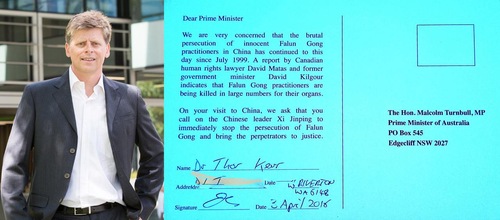 Dear Prime Minister
We are very concerned that the brutal
persecution of innocent Falun Gong
practitioners in China has continued to this
day since July 1999. A report by Canadian
human rights lawyer David Matas and former
government minister David Kilgour
indicates that Falun Gong practitioners are
being killed in large numbers for their organs.
On your visit to China, we ask that you
call on the Chinese leader Xi Jinping to
immediately stop the persecution of Falun
Gong and bring the perpetrators to justice.
Name Dr Thor Kerr
Address Date W RIVERTON
WA 6148
Signature Date 2 April 2016
The Hon. Malcolm Turnbull, MP
Prime Minister of Australia
PO Box 545
Edgecliff NSW 2027